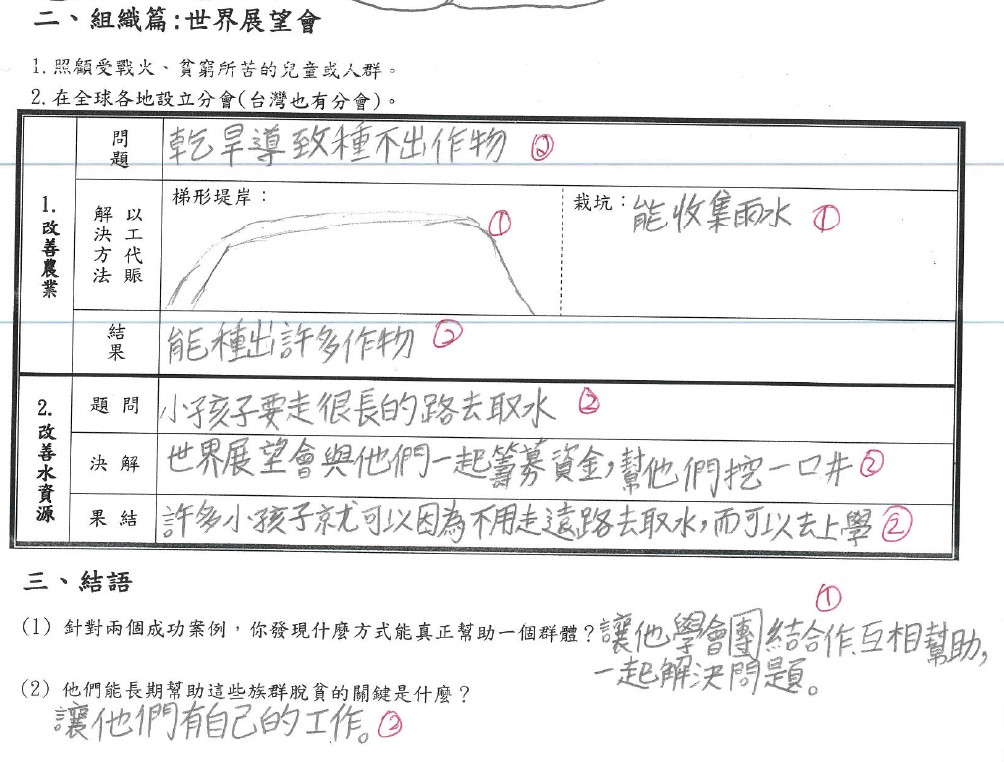 二、組織篇:世界展望會
1.照顧受戰火、貧窮所苦的兒童或人群。
2.在全球各地設立分會(台灣也有分會)。
1.改善農業
問題
乾旱導致種不出作物 ②
以工代賑
解決方法
梯形堤岸：
①
栽坑：能收集雨水 ①
結果
能種出許多作物 ②
2.改善水資源
題問
小孩子要走很長的路去取水 ②
決解
世界展望會與他們一起籌募資金，幫他們挖一口井 ②
果結
許多小孩子就可以因為不用走遠路去取水，而可以去上學 ②
三、結語
①
(1) 針對兩個成功案例，你發現什麼方式能真正幫助一個群體？讓他學會團結合作、互相幫助，
一起解決問題。
(2) 他們能長期幫助這些族群脫貧的關鍵是什麼？
讓他們有自己的工作。②